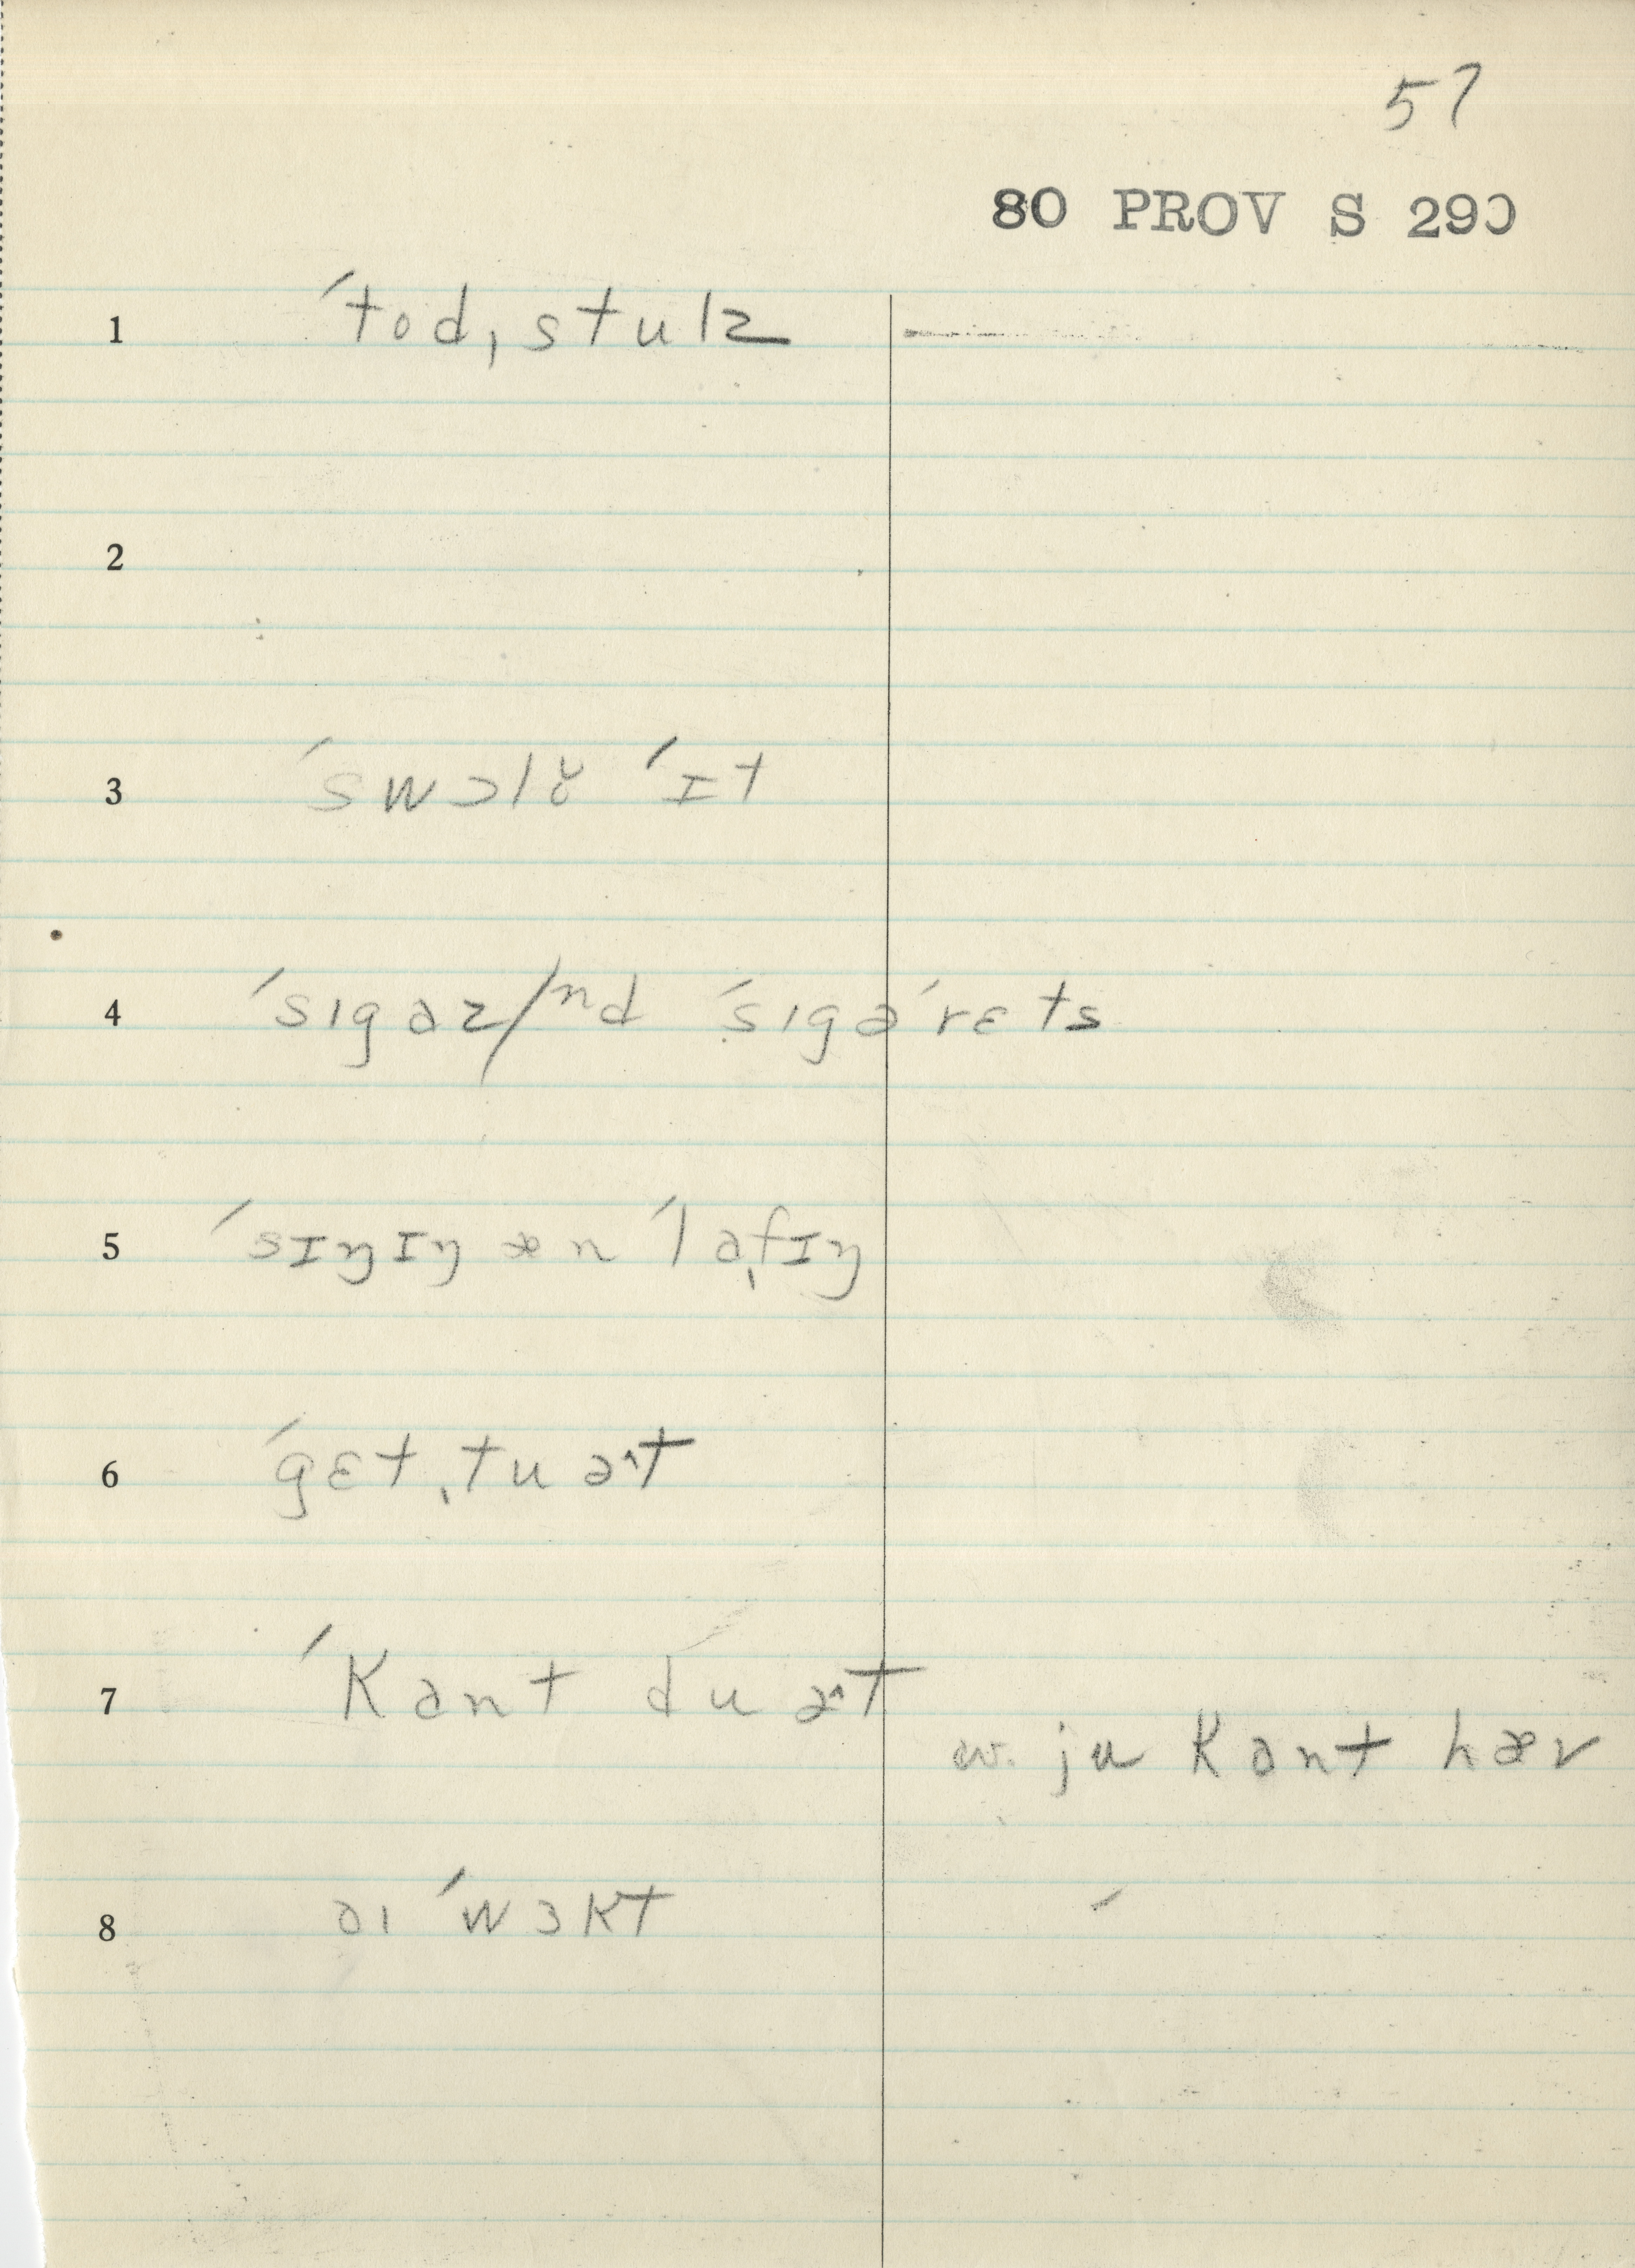 57
80 PROV S 290
1 ˈtod,stulz
2
3 ˈswɔlɤ ˈɪt
4 ˈsɪgaz/nd ˈsɪgəˈrɛts
5 ˈsɪŋɪŋ æn ˈlaˌfɪŋ
6 ˈgɛt ˌtu ə^t
7 ˈkant du ə^t
cv. ju kant hæv
8 aɪ ˈwɜkt